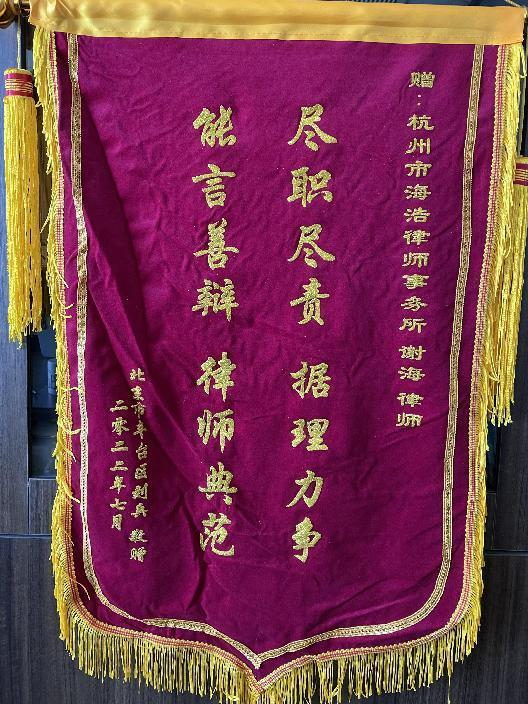 赠：杭州市海浩律师事务所 谢海 律师
尽职尽责 据理力争
能言善辩 律师典范
北京市丰台区刘兵 敬赠
二零二二年七月